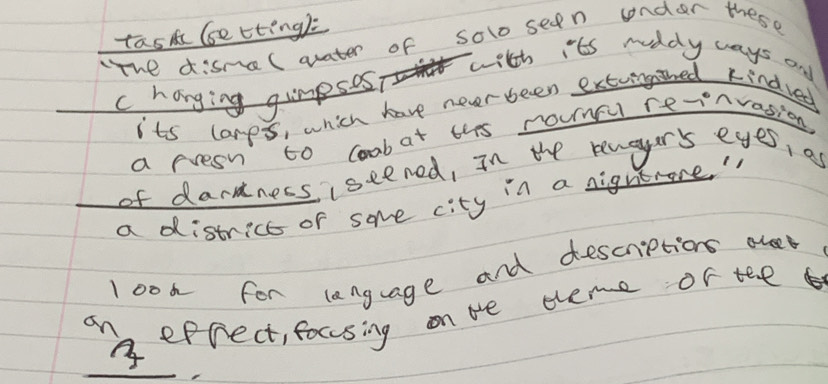 task (setting):
"The dismal quater of solo seen under these
changing glimpses, with its muddy ways and
its lamps, which have never been extuingished kindled
a fresh to combat this mournful re-invasion
of darkness, seemed, In the eyes, as
a district of some city in a nightmare."
look for language and descriptions
an effect, focusing on the theme of the